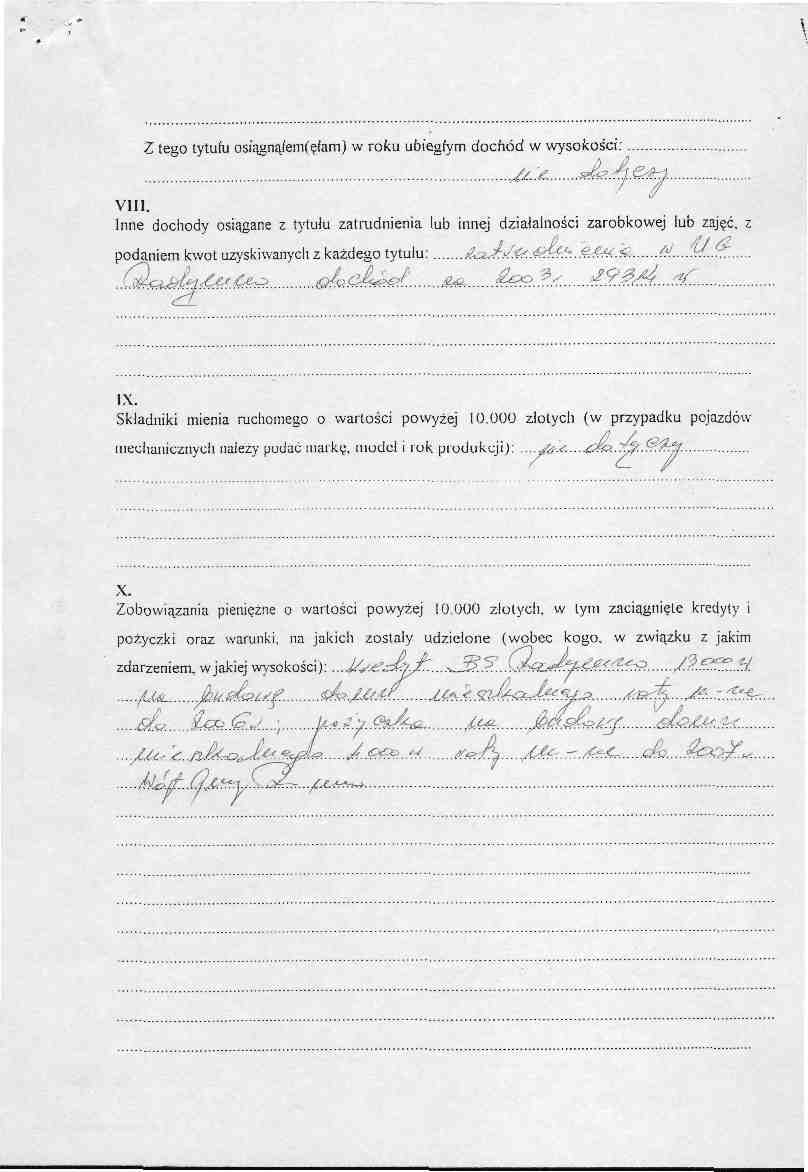 Z tego tytułu osiągnąłem(ęłam) w roku ubiegłym dochód w wysokości:
nie dotyczy
VIII.
Inne dochody osiągane z tytułu zatrudnienia lub innej działalności zarobkowej lub zajęć, z
podaniem kwot uzyskiwanych z każdego tytułu: zatrudnienie w UG
Radymno dochód za 2003r zł
IX.
Składniki mienia ruchomego o wartości powyżej 10.000 złotych (w przypadku pojazdów
mechanicznych należy podać markę, model i rok produkcji): nie dotyczy
X.
Zobowiązania pieniężne o wartości powyżej 10.000 złotych, w tym zaciągnięte kredyty i
pożyczki oraz warunki, na jakich zostały udzielone (wobec kogo, w związku z jakim
zdarzeniem, w jakiej wysokości): kredyt BS Radymno 13000 zł
na budowę domu mieszkalnego raty m-ne
do 2006r; pożyczka na budowę domu
mieszkalnego zł raty m-ne do 2007r
Wójt Gminy